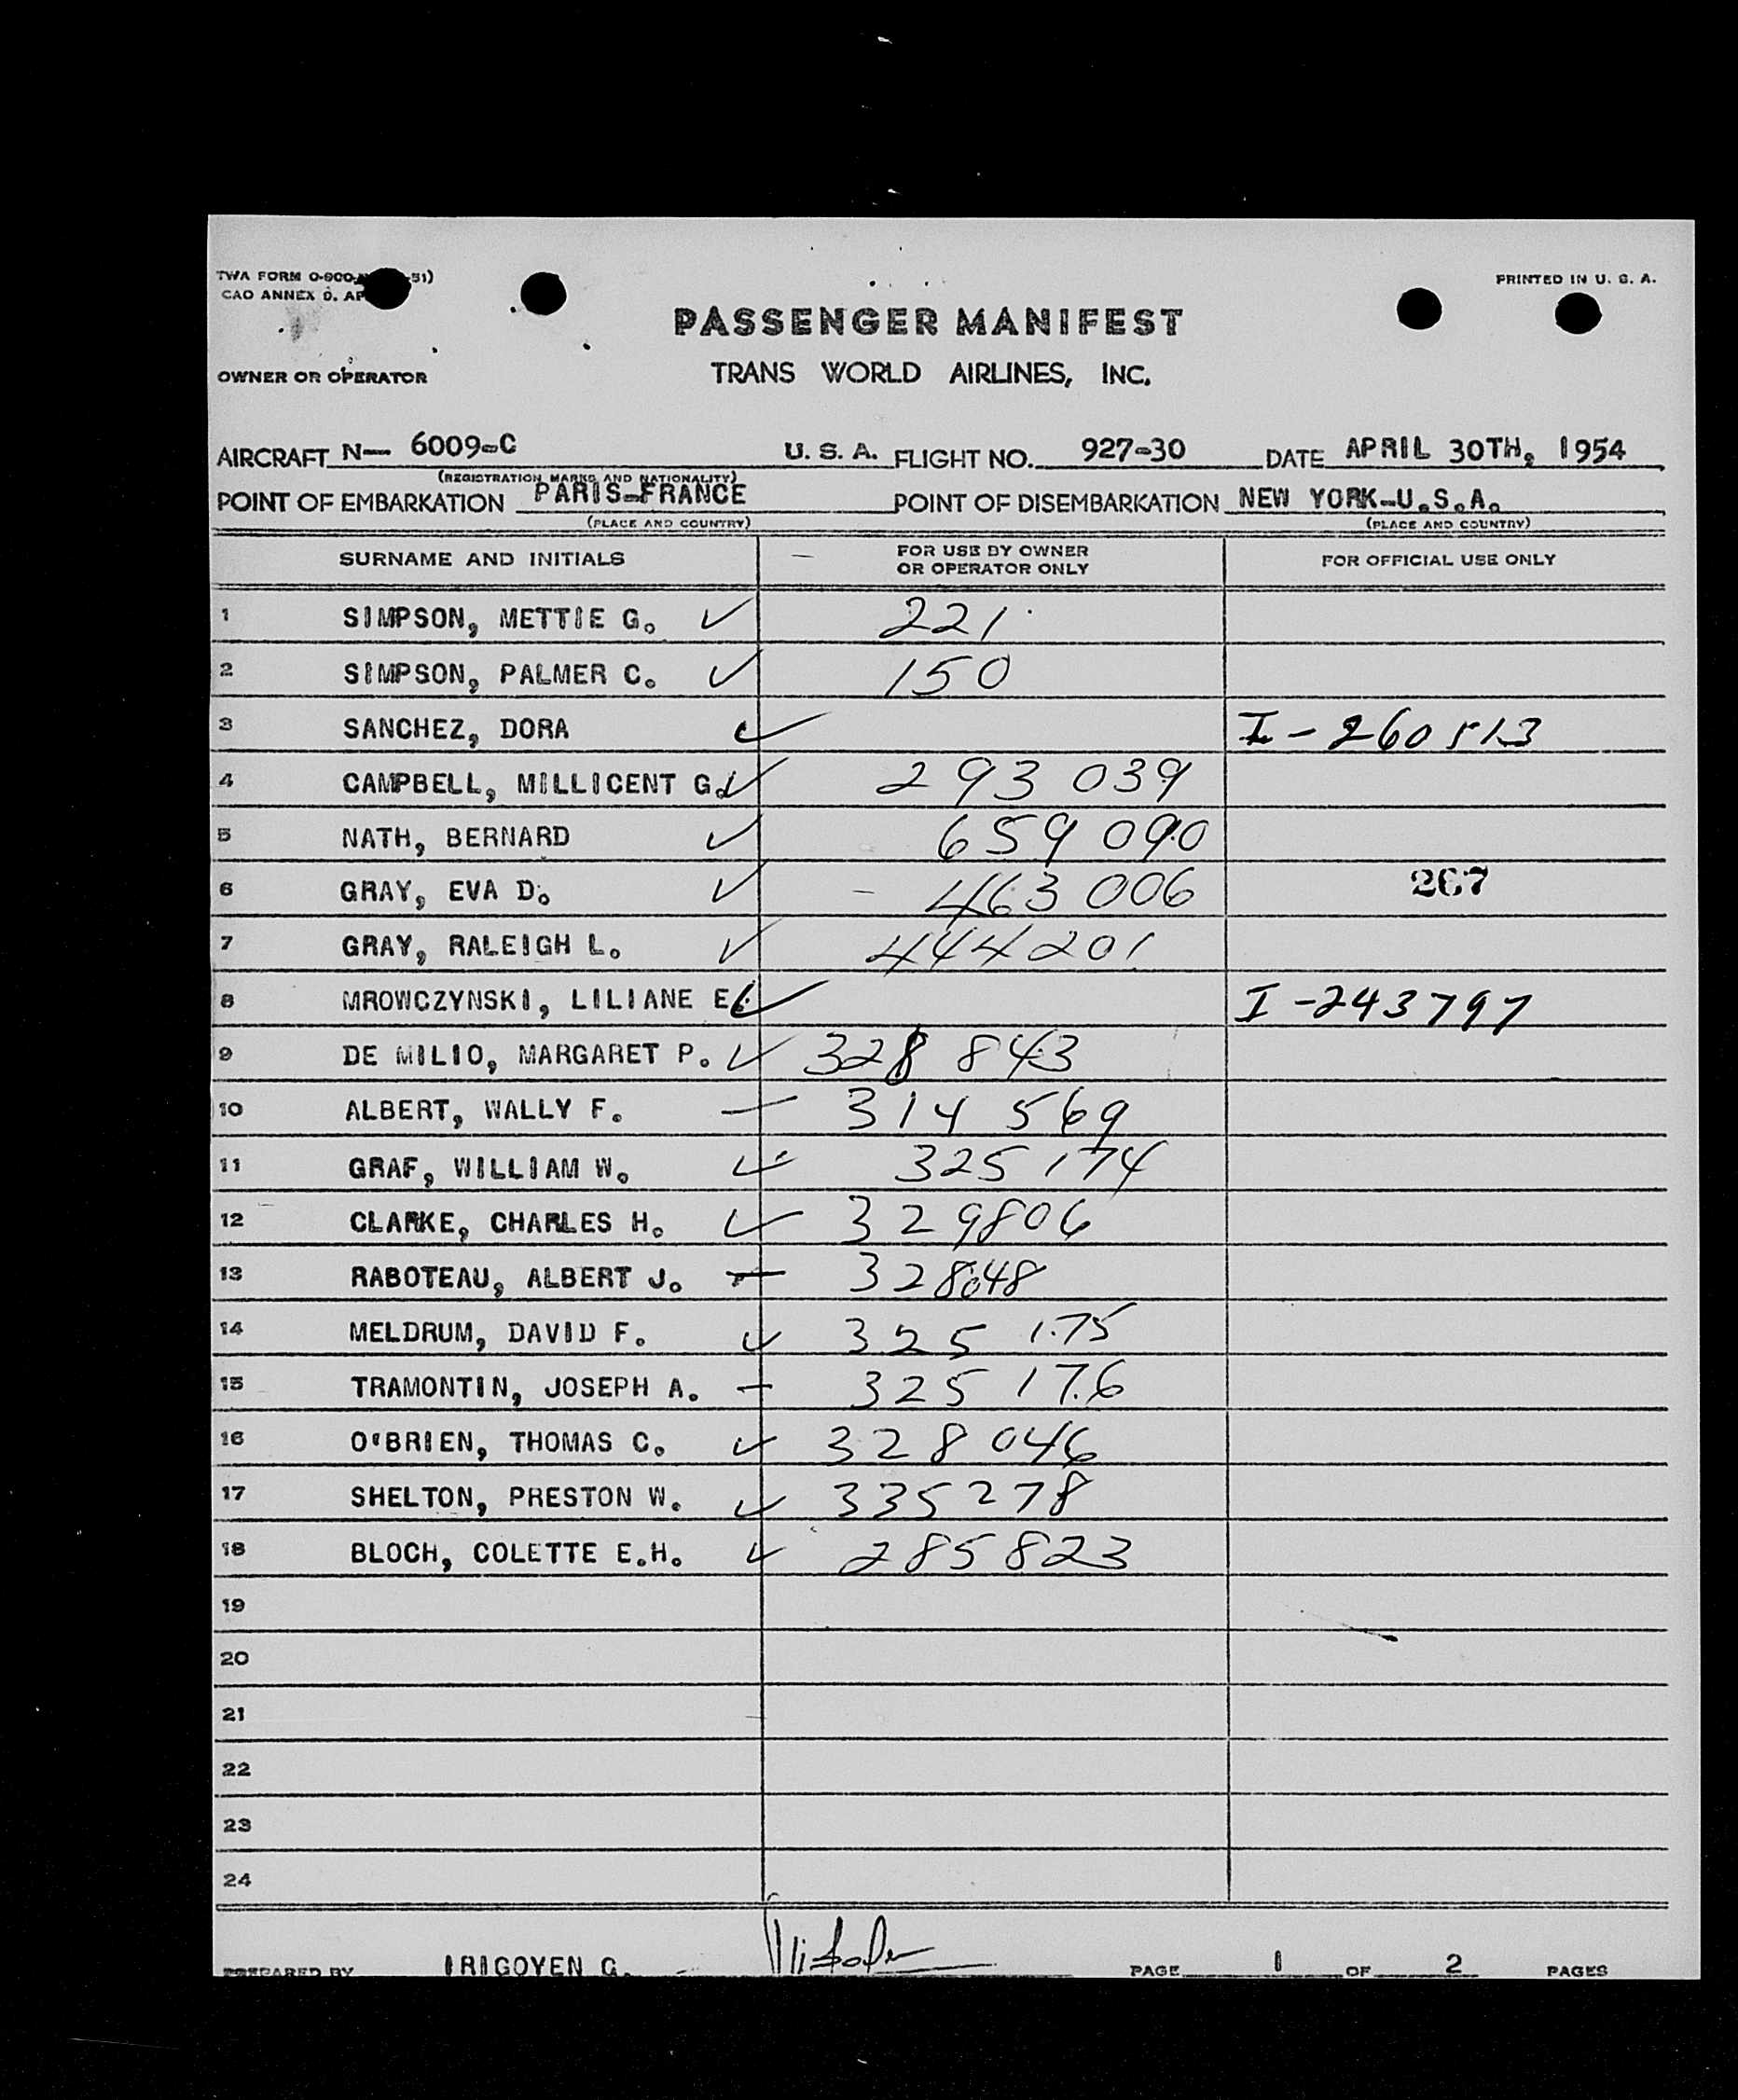 TWA FORM O-900 51)
PRINTED IN U. S. A.
CAO ANNEX 9. AP
PASSENGER MANIFEST
OWNER OR OPERATOR
TRANS WORLD AIRLINES, INC.
AIRCRAFT N— 6009-C U. S. A. FLIGHT NO. 927-30 DATE APRIL 30TH, 1954
(REGISTRATION MARKS AND NATIONALITY)
POINT OF EMBARKATION PARIS-FRANCE POINT OF DISEMBARKATION NEW YORK-U.S.A.
(PLACE AND COUNTRY) (PLACE AND COUNTRY)
SURNAME AND INITIALS FOR USE BY OWNER OR OPERATOR ONLY FOR OFFICIAL USE ONLY
1 SIMPSON, METTIE G. ✓ 221
2 SIMPSON, PALMER C. ✓ 150
3 SANCHEZ, DORA ✓ I-260513
4 CAMPBELL, MILLICENT G. ✓ 293 039
5 NATH, BERNARD ✓ 659 090
6 GRAY, EVA D. ✓ - 463 006 267
7 GRAY, RALEIGH L. ✓ 444201
8 MROWCZYNSKI, LILIANE E. ✓ I-243797
9 DE MILIO, MARGARET P. ✓ 328 843
10 ALBERT, WALLY F. — 314 569
11 GRAF, WILLIAM W. ✓ 325 174
12 CLARKE, CHARLES H. ✓ 329806
13 RABOTEAU, ALBERT J. — 328048
14 MELDRUM, DAVID F. ✓ 325 175
15 TRAMONTIN, JOSEPH A. — 325 176
16 O'BRIEN, THOMAS C. ✓ 328 046
17 SHELTON, PRESTON W. ✓ 335278
18 BLOCH, COLETTE E.H. ✓ 285823
19
20
21
22
23
24
PREPARED BY IRIGOYEN G. PAGE 1 OF 2 PAGES